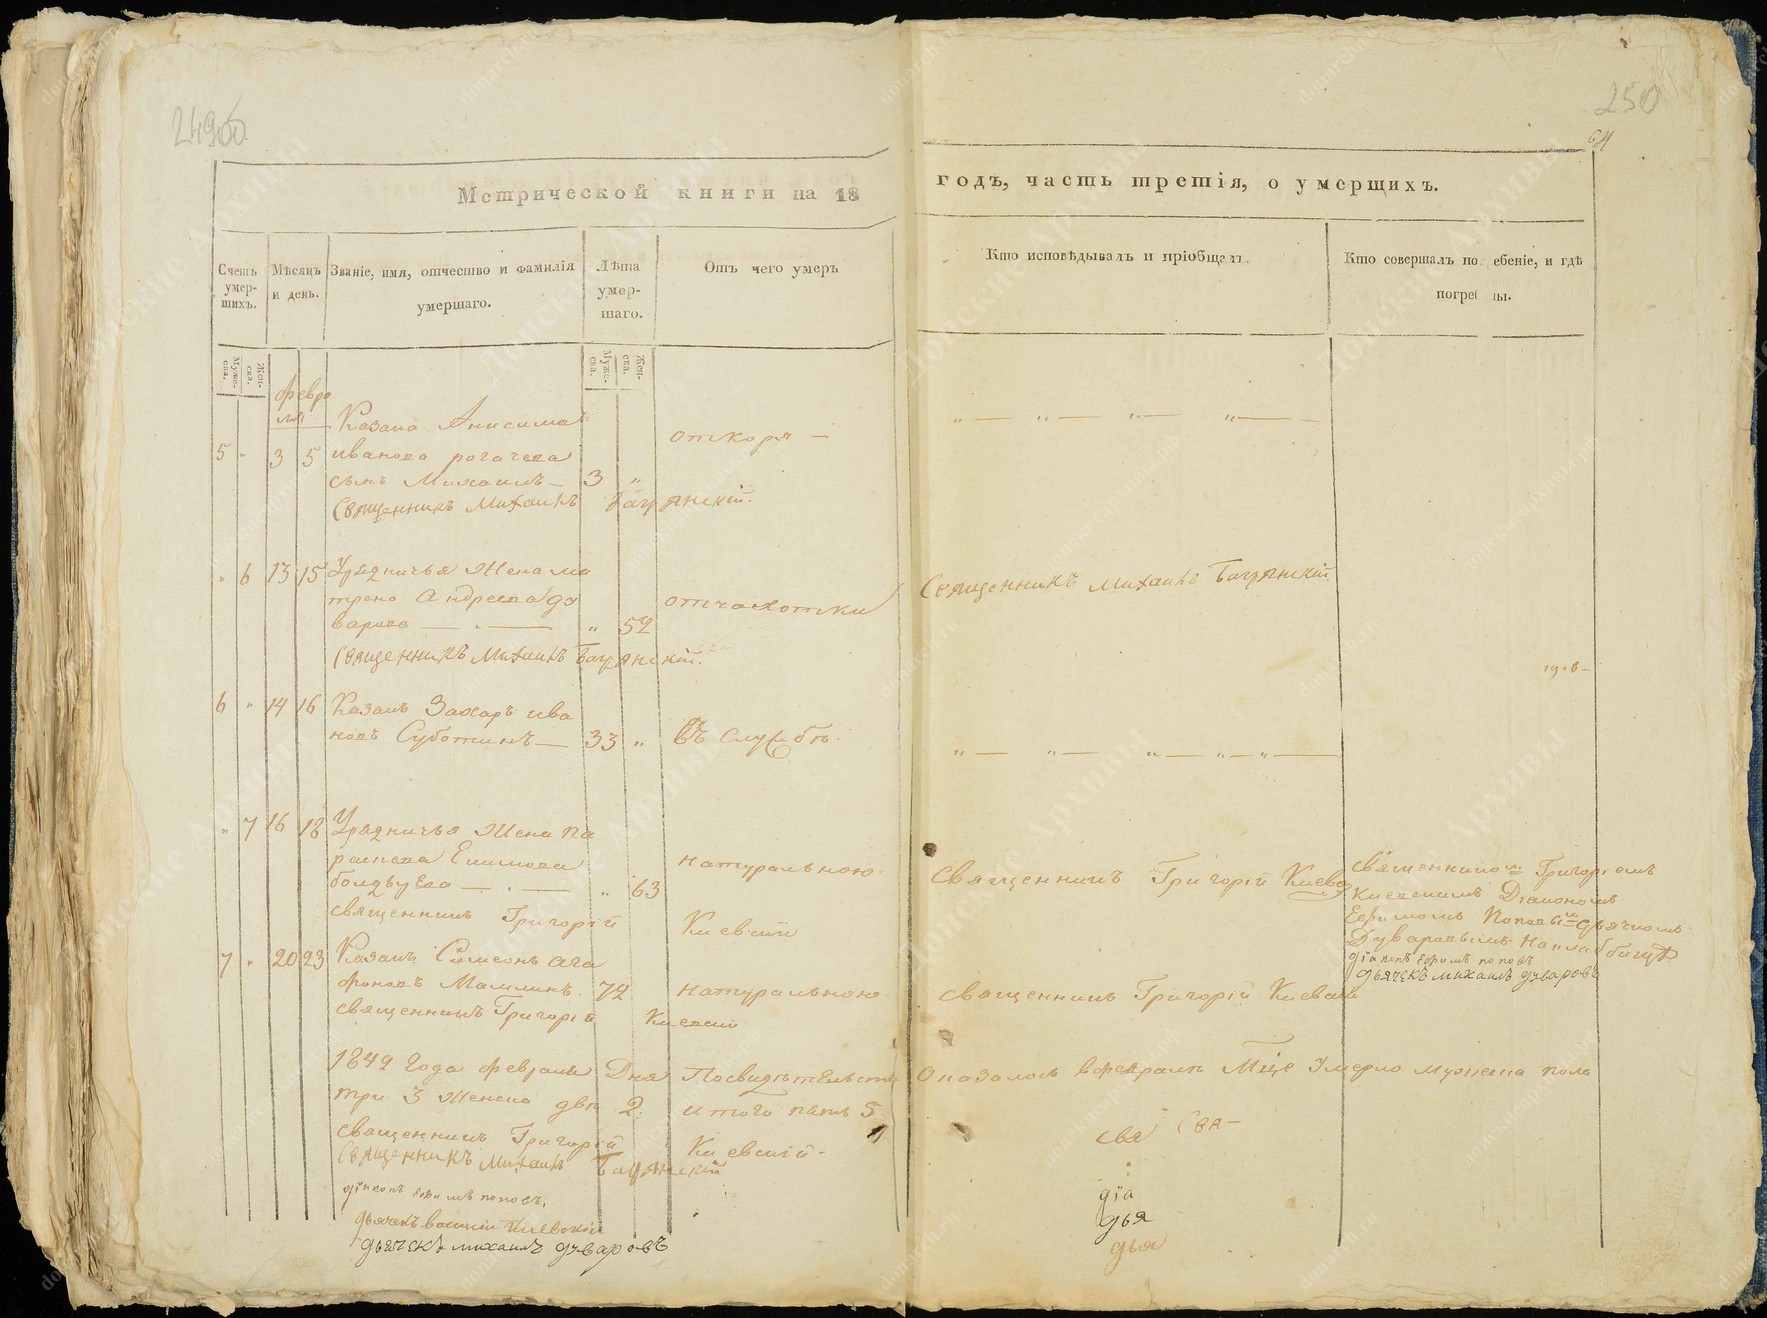 249об.
250
64
Метрической книги на 18
годъ, часть третія, о умерщихъ.
Счетъ умер-шихъ.
Мѣсяцъ и день.
Званіе, имя, отчество и фамилія умершаго.
Лѣта умер-шаго.
Отъ чего умеръ
Кто исповѣдывалъ и пріобщалъ.
Кто совершалъ по ебеніе, и гдѣ погре ны.
Муже-ска.
Жен-ска.
Муже-ска.
Жен-ска.
февра
ля
Казака Анисима
5 " 3 5 иванова рогачева
откоря —
сынъ Михаилъ — 3 "
Священникъ Михаилъ Багрянскій.
" 6 13 15 Урядничья Жена ма
трена Андреева ду
отчахотки
Священникъ Михаилъ Багрянскій
варова — . — " 52
Священникъ Михаилъ Багрянскій.
6 " 14 16 Казакъ Захаръ ива
новъ Суботинъ — 33 "
въ службѣ.
" 7 16 18 Урядничья Жена па
раскева Екимова
натуральною
Священникъ Григорій Киевс
— . — " 63
священникъ Григорій Киевскій
священникомъ Григоріемъ
Киевскимъ Діакономъ
Ефимомъ Поповымъ дьячкомъ
Дуваровымъ На кладбищѣ
діаконъ ефимъ поповъ
дьячекъ михаилъ дуваровъ
7 " 20 23 Казакъ Симеонъ ага
фоновъ 72
натуральною
священникъ Григорій Киевскій
священникъ Григорій Киевскій
1842 Года февраля Дня Посвидѣтельству Оказалось вфевралѣ Мце Умерло мужеска пола
три 3 Женска двѣ 2. итого пять 5
священникъ Григорій Киевскій.
Священникъ Михаилъ Багрянскій
діаконъ ефимъ поповъ.
дьячекъ василій Киевскій
дьячекъ михаилъ дуваровъ
свя Свя—
діа
дья
дья